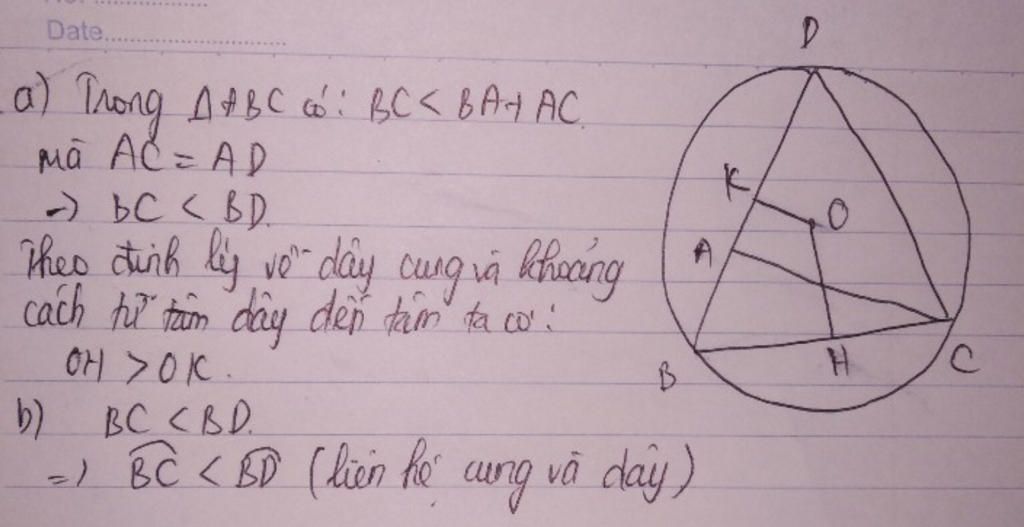 Date
D
a) Trong ΔABC có: BC < BA + AC.
mà AC = AD
→ BC < BD.
Theo định lý về dây cung và khoảng
cách từ tâm dây đến tâm ta có:
OH > OK.
b) BC < BD.
=> BC < BD (liên hệ cung và dây)
K
O
A
B
H
C